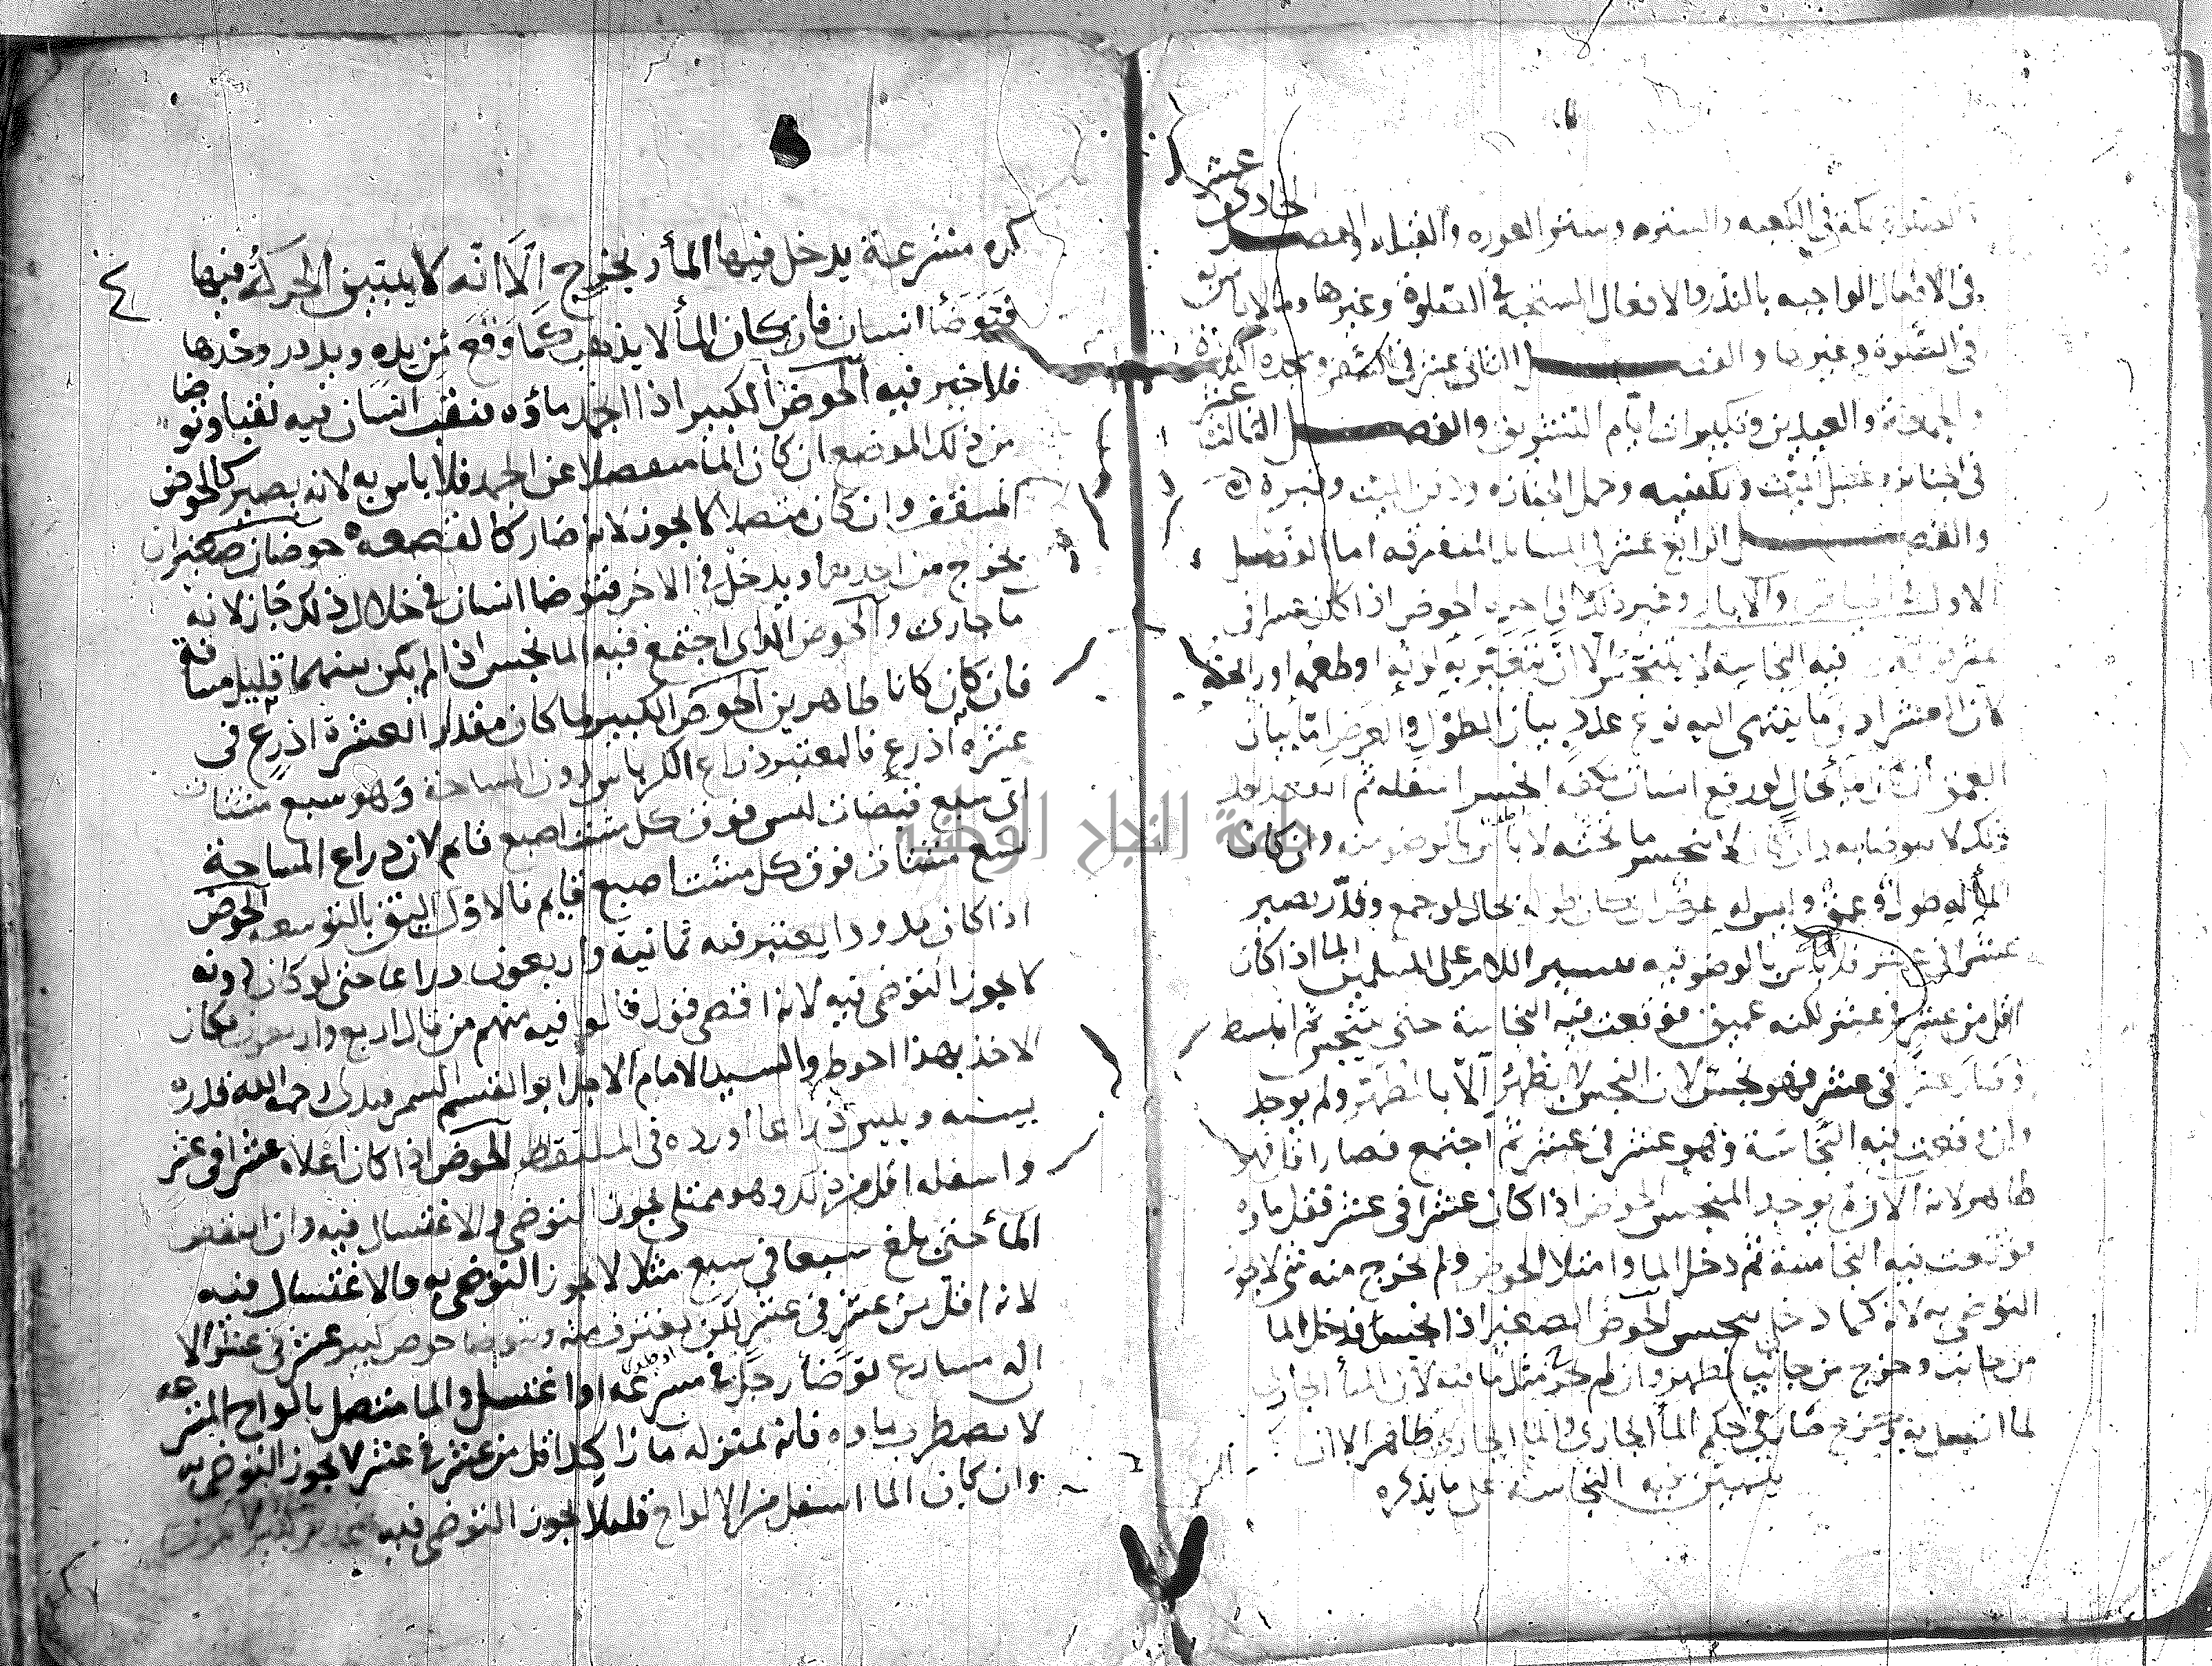 عشر
الحادي
الصلوة بمكة في الكعبه والستره وستر العوره والقبله والفصل
في الافعال الواجبه بالنذر والافعال المستحبة في الصلوة وغيرها وما لا باس به
في الصلوة وغيرها والفصل الثاني عشر في السفر وسجدة التلاوة
عشر
والجمعة والعيدين وتكبيرات ايام التشريق والفصل الثالث
في الجنايز وغسل الميت وتكفينه وحمل الجنازه ودفن الميت وقبره
والفصل الرابع عشر في المسايل المتفرقه اما الفصل
الاول في الحياض والابار وغير ذلك الحوض اذا كان عشرا في
عشر فوقعت فيه النجاسة لا يتنجس الا ان يتغير به لونه او طعمه او رائحته
لان العشر ادنى ما ينتهي اليه نوع عدد بيان الطول والعرض اما بيان
العمق ان كان بحال لو رفع انسان بكفه انحسر اسفله ثم
ذلك لا يتوضا به وان كان لا ينحسر ما تحته لا باس بالوضو منه وان كان
الماء له طول وعمق وليس له عرض ان كان طوله بحال لو جمع وقدر يصير
عشرا في عشر فلا باس بالوضو فيه تيسيرا للامر على المسلمين الما اذا كان
اقل من عشر في عشر لكنه عميق فوقعت فيه النجاسة حتى يتنجس ثم انبسط
وصار عشر في عشر فهو نجس لان النجس لا يطهر الا بالمطهر ولم يوجد
وان وقعت فيه النجاسة وهو عشر في عشر ثم اجتمع فصار اقل فهو
طاهر لانه لم يوجد المنجس الحوض اذا كان عشرا في عشر فقل ماؤه
فوقعت فيه النجاسة ثم دخل الما وامتلا الحوض ولم يخرج منه شي لا يجوز
التوضي به لانه كما دخل يتنجس الحوض الصغير اذا تنجس فدخل الما
من جانب وخرج من جانب يطهر وان لم يخرج مثل ما فيه لان الماء الجاري
لما اتصل به وخرج صار في حكم الماء الجاري والما الجاري طاهر الا ان
يستبين فيه النجاسة على ما يذكره
٤
كره مشرعة يدخل فيها الماء ويخرج الا انه لا يستبين الحركة فيها
فتوضا انسان فان كان الماء لا يذهب كما وقع من يده ويدور وحدها
فلا خير فيه الحوض الكبير اذا انجمد ماؤه فنقب انسان فيه نقبا وتوضا
من ذلك الموضع ان كان الما منفصلا عن الجمد فلا باس به لانه يصير كالحوض
المسقف وان كان متصلا لا يجوز لانه صار كالقصعه حوضان صغيران
يخرج من احديهما ويدخل في الاخر فتوضا انسان في خلال ذلك جاز لانه
ما جاري والحوض الذي اجتمع فيه الما نجس اذا لم يكن بينهما قليل مسافة
فان كان كانا طاهرين الحوض الكبير لما كان مقدار العشرة اذرع في
عشره اذرع فالمعتبر ذراع الكرباس دون المساحة وهو سبع مشتات
اي سبع قبضات ليس فوق كل مشت اصبع قايم لان ذراع المساحة
سبع مشتات فوق كل مشت اصبع قايم فالاول اليق بالتوسعه الحوض
اذا كان مدورا يعتبر فيه ثمانية واربعون ذراعا حتى لو كان دونه
لا يجوز التوضي فيه لانه اقصى قول قالوا فيه منهم من قال اربع واربعون فكان
الاخذ بهذا احوط والسيد الامام الاجل ابو القسم السمرقندي رحمه الله قدره
بستة وثلثين ذراعا اورده في الملتقط الحوض اذا كان اعلاه عشرا في عشر
واسفله اقل من ذلك وهو ممتلي يجوز التوضي والاغتسال فيه وان انتقص
الماء حتى بلغ سبعا في سبع مثلا لا يجوز التوضي به والاغتسال فيه
لانه اقل من عشر في عشر لكن يغترف منه ويتوضا حوض كبير عشر في عشر الا
ان له مشارع توضأ رجل في مشرعه او اغتسل والما متصل بالواح المشرعه
لا يضطرب ماؤه فانه بمنزلة ما راكد اقل من عشر في عشر لا يجوز التوضي به
وان كان الما اسفل من الالواح قليلا يجوز التوضي فيه
مطبعة النجاح الوطنية